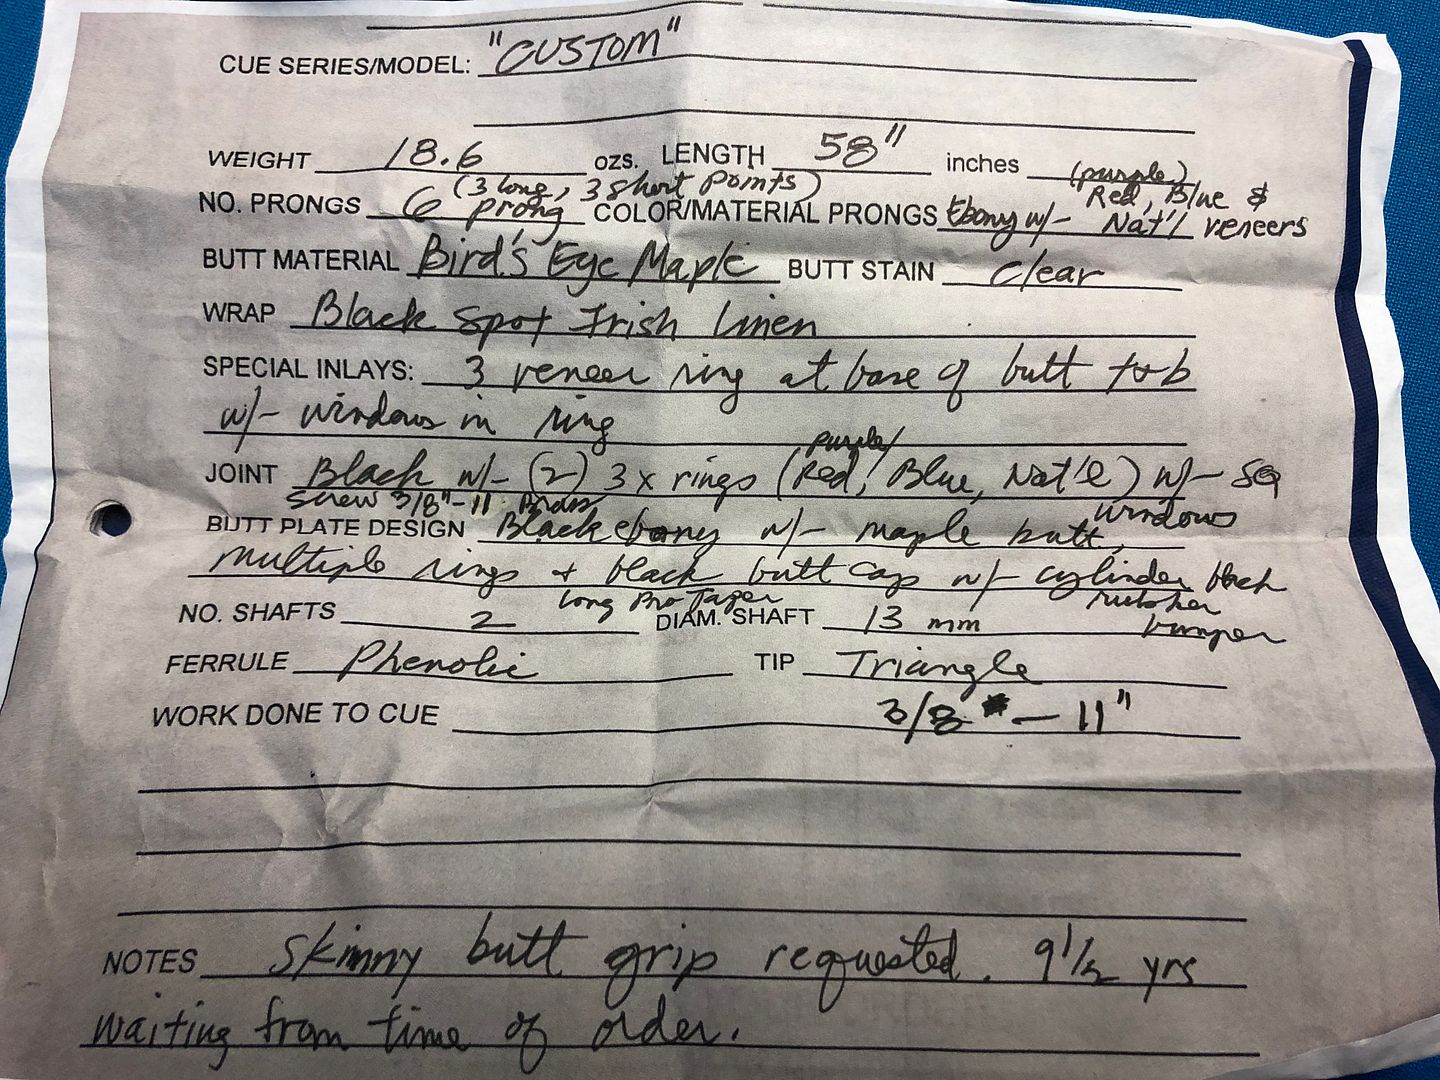 CUE SERIES/MODEL: "CUSTOM"
WEIGHT 18.6 ozs. LENGTH 58" inches (purple)
(3 long, 3 short points) Red, Blue &
NO. PRONGS 6 prong COLOR/MATERIAL PRONGS Ebony w/- Nat'l veneers
BUTT MATERIAL Bird's Eye Maple BUTT STAIN Clear
WRAP Black Spot Irish Linen
SPECIAL INLAYS: 3 veneer ring at base of butt
w/- windows in ring
purple/
JOINT Black w/- (2) 3x rings (Red, Blue, Nat'l) w/- SQ
screw 3/8"-11 Brass windows
BUTT PLATE DESIGN Black ebony w/- maple butt,
multiple rings + black butt cap w/- cylinder black
long Pro Taper rubber
NO. SHAFTS 2 DIAM. SHAFT 13 mm bumper
FERRULE Phenolic TIP Triangle
WORK DONE TO CUE 3/8 - 11"
NOTES Skinny butt grip requested. 9 1/2 yrs
waiting from time of order.